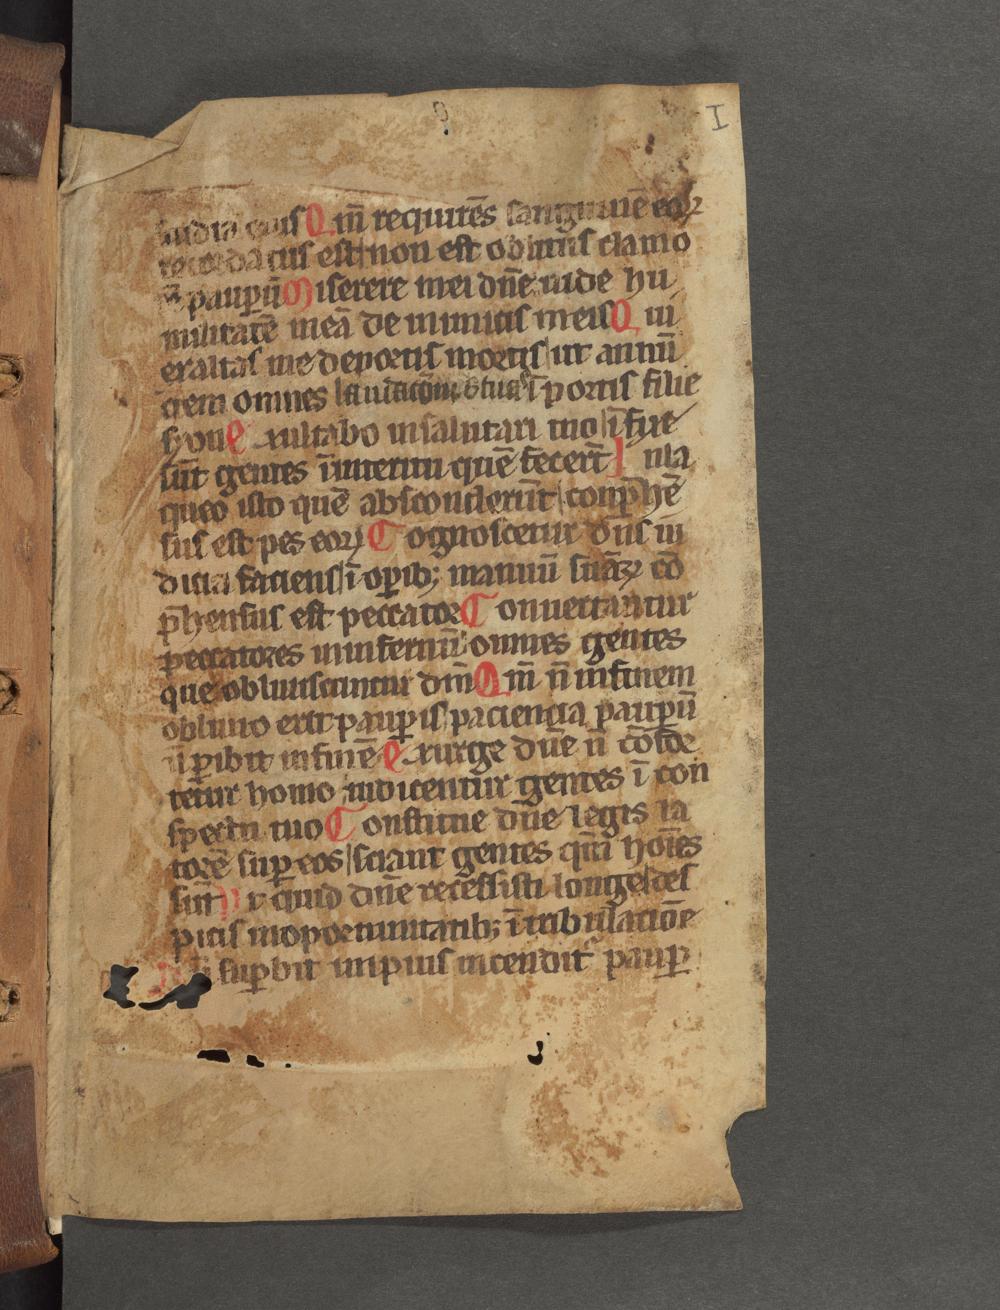 I
studia eius Qm̄ requirēs sanguinē eoꝝ
recordatus est non est oblitus clamo
rē paup̲ū Miserere mei dn̄e uide hu
militatē meā de inimicis meis Qui
exaltas me de portis mortis ut annū
ciem omnes laudatōnes tuas ī portis filie
syon Exultabo in salutari tuo īfixe
sūt gentes ī interitu quē fecerūt In la
queo isto quē absconderūt conp̄hē
sus est pes eoꝝ Cognoscetur dn̄s iu
dicia faciens ī op̲ib; manuū suaꝝ cō
p̄hensus est peccator Conuertantur
peccatores in infernū omnes gentes
que obliuiscuntur dm̄ Qm̄ n̄ in finem
obliuio erit paup̲is paciencia paup̲ū
n̄ p̲ibit in finē Exurge dn̄e n̄ cōfor
tetur homo iudicentur gentes ī con
spectu tuo Constitue dn̄e legis la
torē sup̲ eos sciant gentes qm̄ hoīes
sūt Vt quid dn̄e recessisti longe des
picis in oportunitatib; ī tribulacione
sup̲bit impius incendit᷑ paup̲